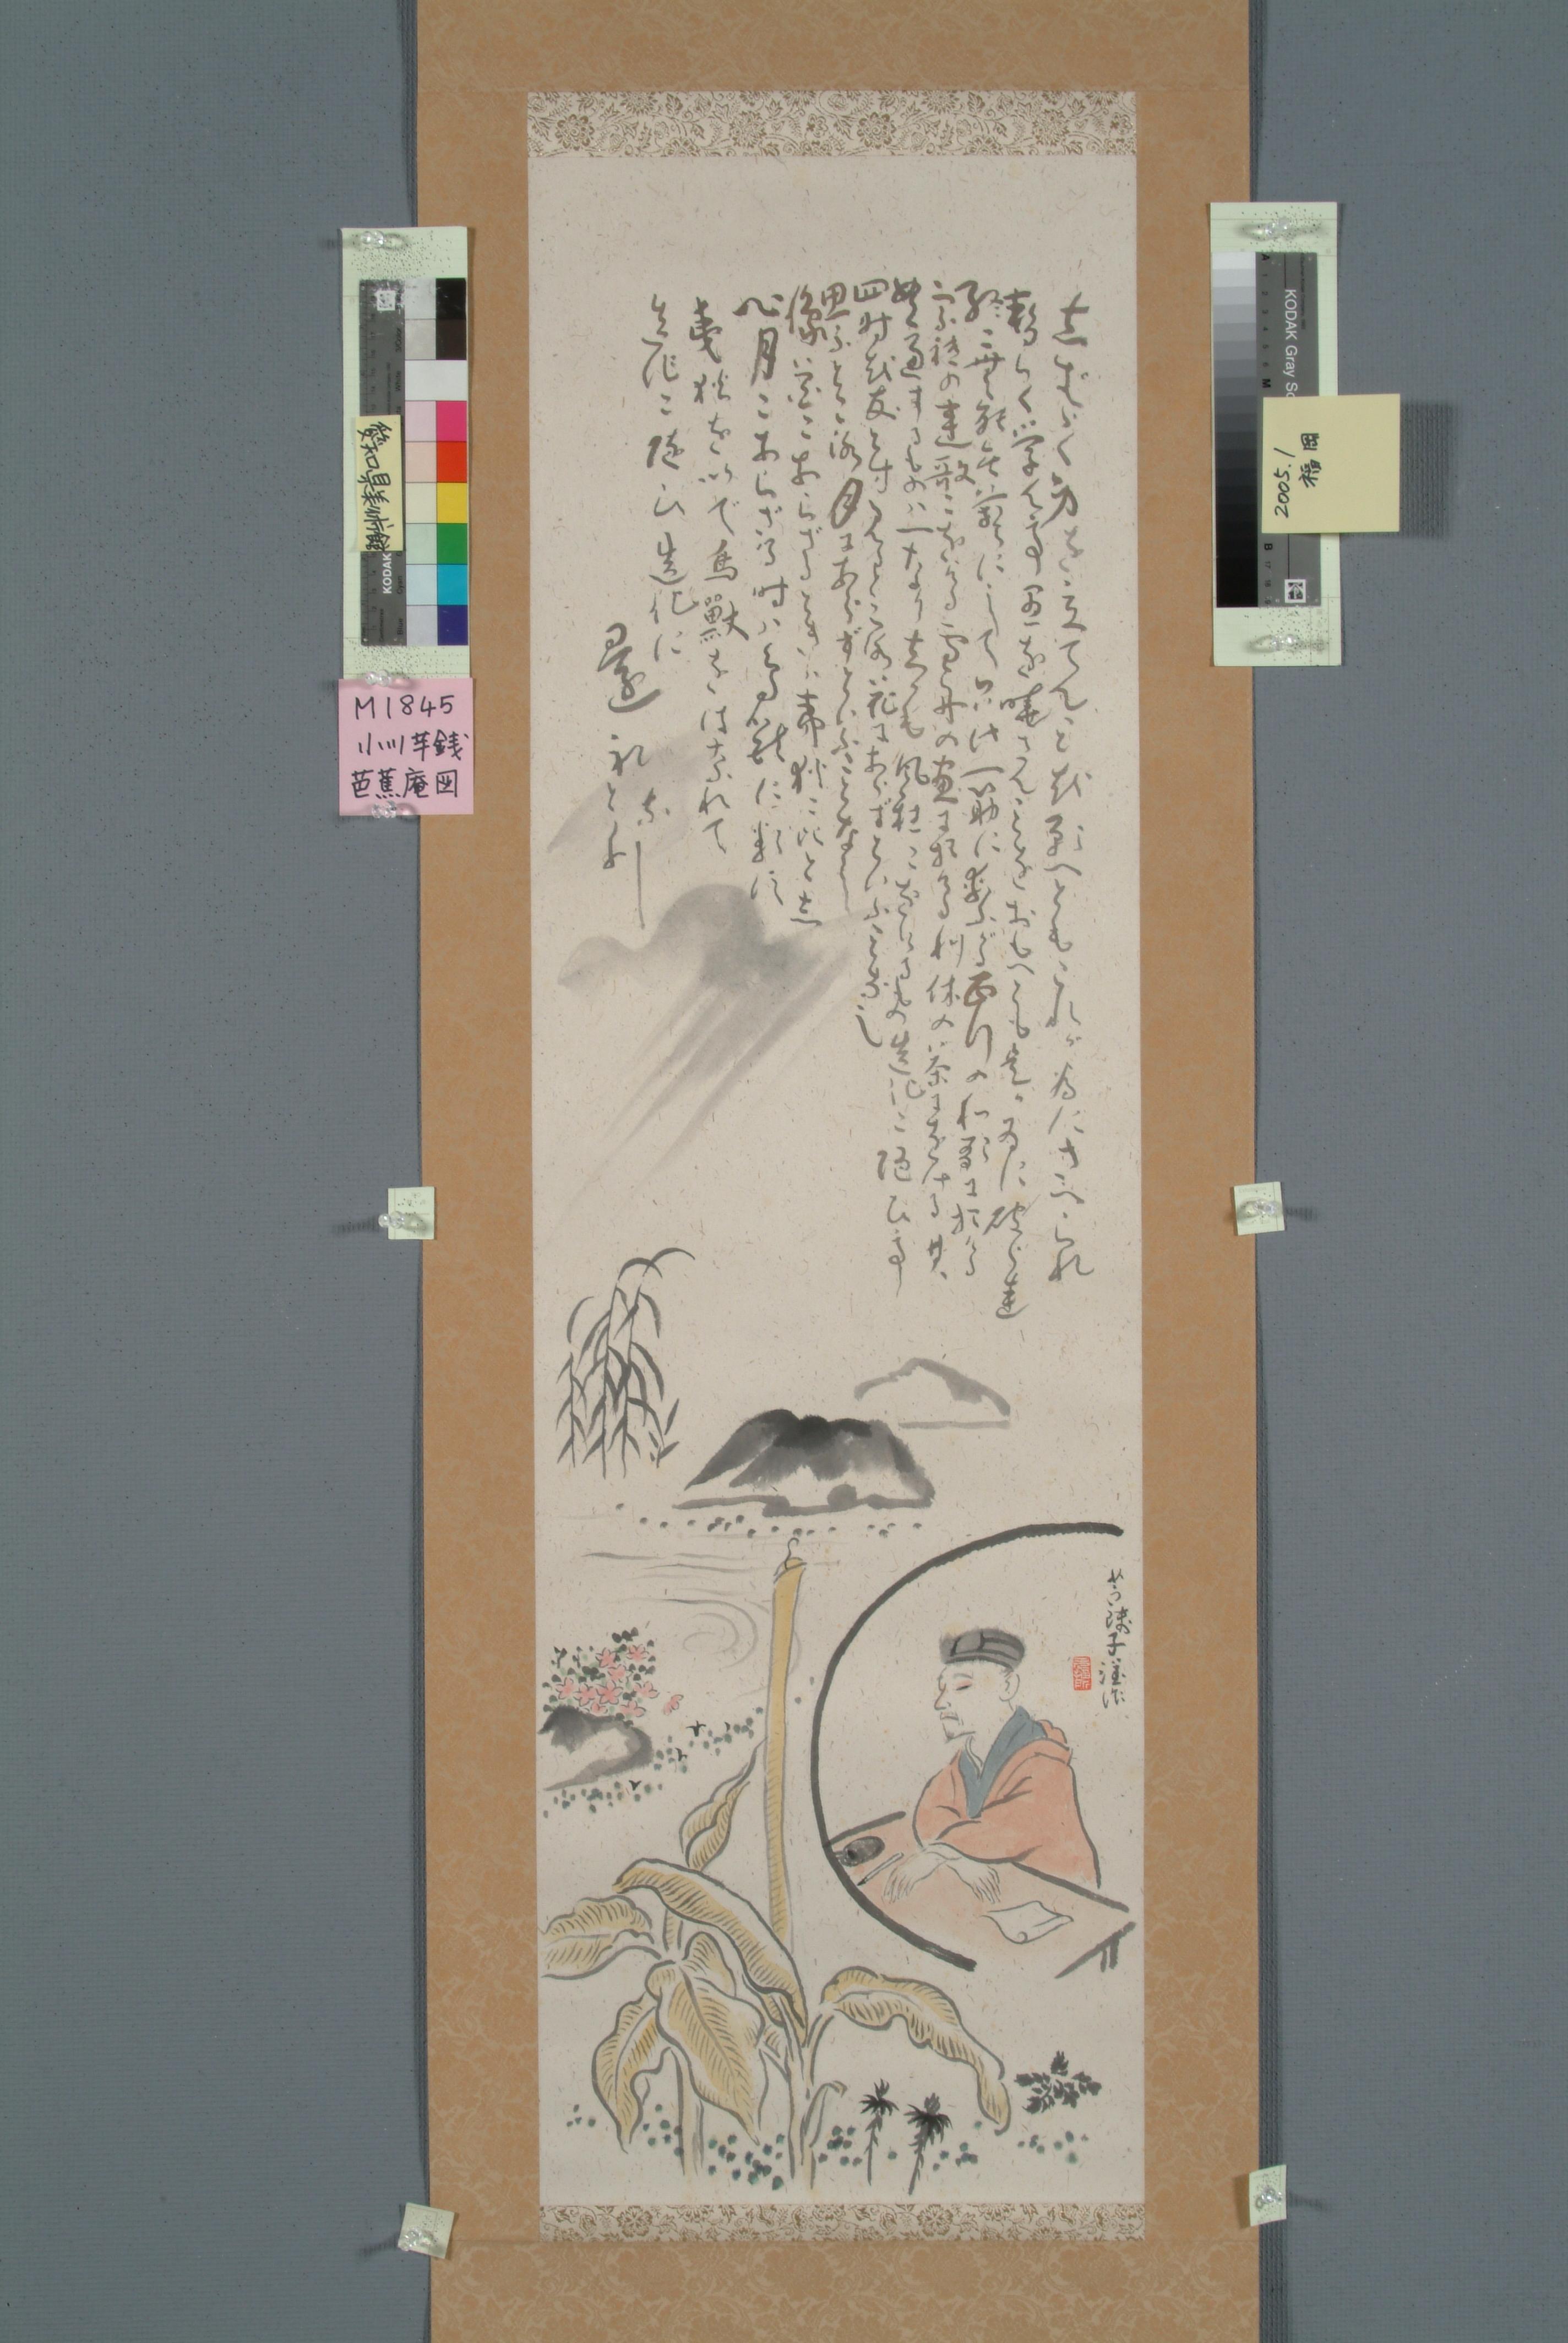 しばらく身を立てんことを願へどもこれが為にさへられ
暫らく学んで愚を暁さんことをおもへども是が為に破られ
終に無能無芸にして只此一筋に繋がる西行の和歌に於ける
宗祇の連歌における雪舟の画に於ける利休の茶における其
貫道するものは一なりしかも風雅におけるもの造化に随ひて
四時を友とす見るところ花にあらずといふことなし
思ふところ月にあらずといふことなし
像花にあらざるときは夷狄に比とし
心月にあらざる時は鳥獣に類す
夷狄を出で鳥獣をはなれて
造化に随ひ造化に
還れとなり
芋銭子
M1845
小川芋銭
芭蕉庵図
愛知県美術館
2005.1
福岡
KODAK
KODAK Gray Sc